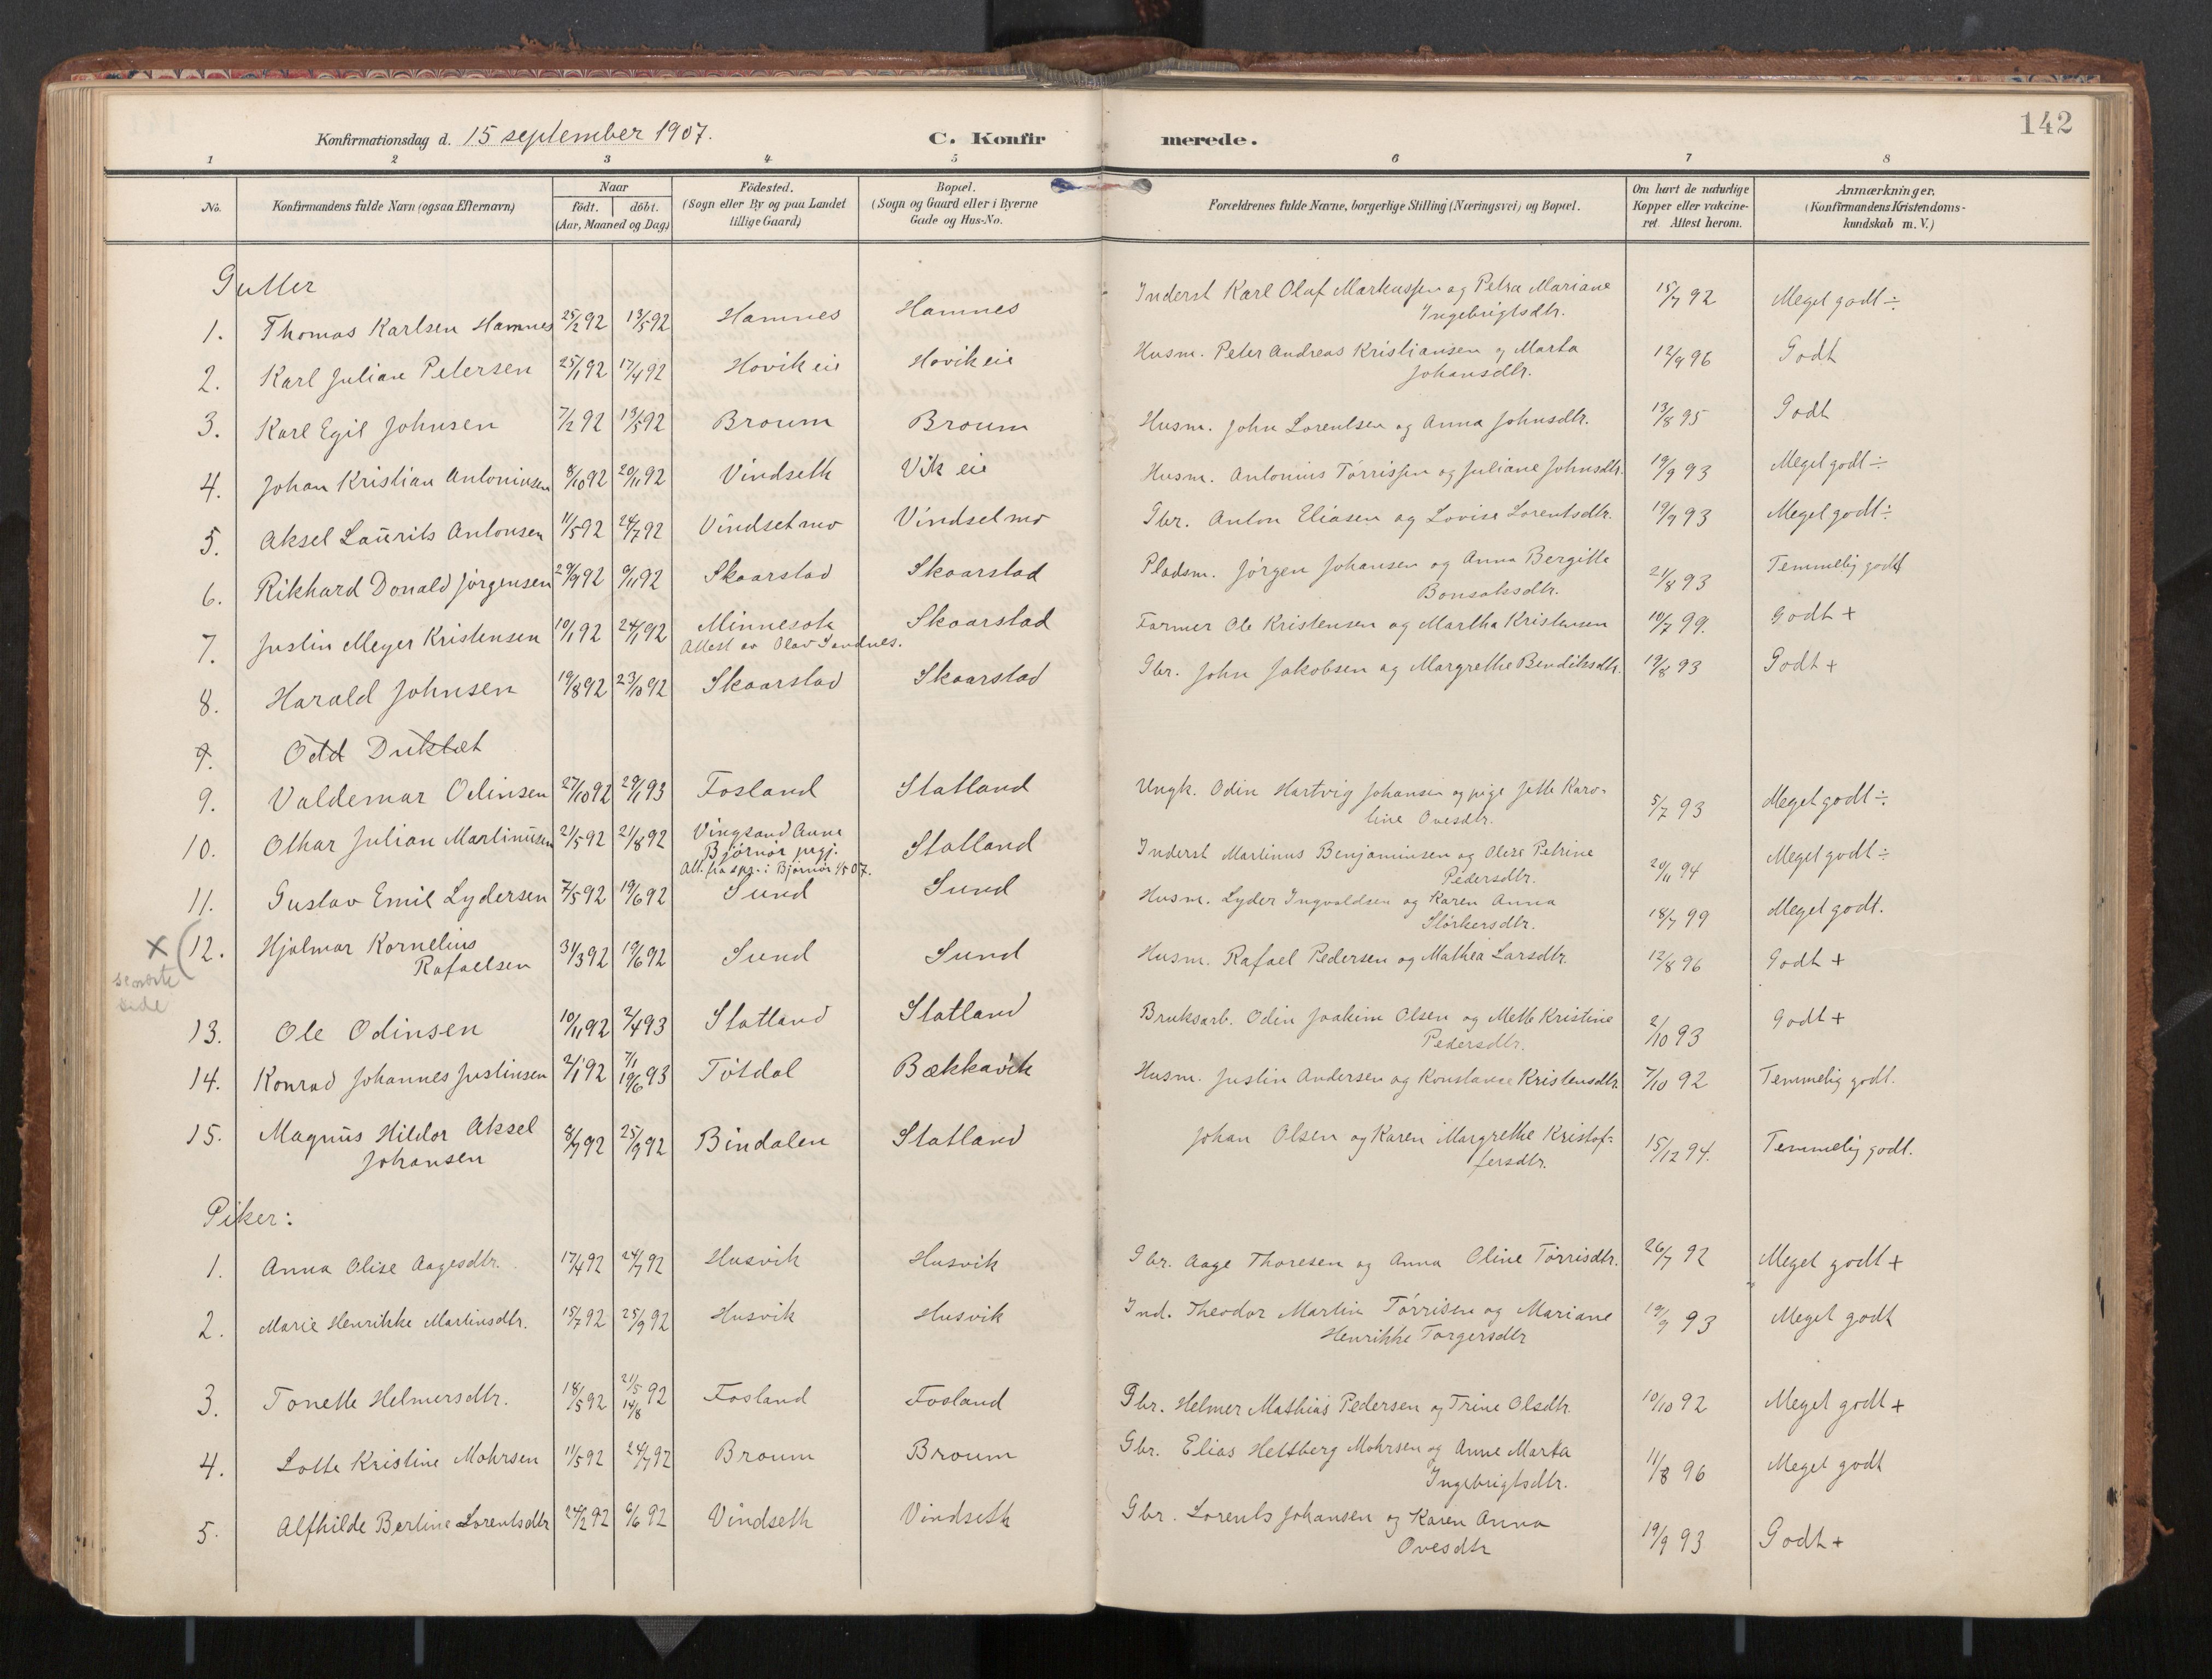 142
Konfirmationsdag d. 15 september 1907. C. Konfir merede.
1 2 3 4 5 6 7 8
No. Konfirmandens fulde Navn (ogsaa Efternavn) Naar født. døbt. (Aar, Maaned og Dag) Födested. (Sogn eller By og paa Landet tillige Gaard) Bopæl. (Sogn og Gaard eller i Byerne Gade og Hus-No. Forældrenes fulde Navne, borgerlige Stilling (Næringsvei) og Bopæl. Om havt de naturlige Kopper eller vakcineret. Attest herom. Anmærkninger. (Konfirmandens Kristendomskundskab m. V.)
Gutter
1. Thomas Karlsen Hamnes 25/2 92 13/5 92 Hamnes Hamnes Inderst Karl Olaf Markussen og Petra Mariane 15/7 92 Meget godt ÷
Ingebrigtsdtr.
2. Karl Julian Petersen 25/1 92 17/4 92 Hovik eie Hovik eie Husm. Peter Andreas Kristiansen og Marta 12/9 96 Godt
Johansdtr.
3. Karl Egil Johnsen 7/2 92 13/5 92 Broum Broum Husm. John Lorentsen og Anna Johnsdtr. 13/8 95 Godt
4. Johan Kristian Antoniusen 8/10 92 20/11 92 Vindseth Vik eie Husm. Antonius Tørrissen og Juliane Johnsdtr. 19/9 93 Meget godt ÷
5. Aksel Laurits Antonsen 11/5 92 24/7 92 Vindsetmo Vindsetmo Gbr. Anton Eliasen og Lovise Lorentsdtr. 19/9 93 Meget godt ÷
6. Rikhard Donald Jørgensen 29/9 92 6/11 92 Skaarstad Skaarstad Pladsm. Jørgen Johansen og Anna Bergitta 21/8 93 Temmelig godt
Bonsaksdtr.
7. Justin Meyer Kristensen 10/1 92 24/1 92 Minnesota Skaarstad Farmer Ole Kristensen og Martha Kristensen 10/7 99. Godt +
Attest av Olav Sandnes.
8. Harald Johnsen 19/8 92 23/10 92 Skaarstad Skaarstad Gbr. John Jakobsen og Margrethe Bendiksdtr. 19/8 93 Godt +
9. Odd Duklæt
9. Valdemar Odinsen 27/10 92 29/1 93 Fosland Statland Ungk. Odin Hartvig Johansen og pige Jette Karo- 5/7 93 Meget godt ÷
line Ovesdtr.
10. Othar Julian Martinusen 21/5 92 21/8 92 Vingsand Aune Statland Inderst Martinus Benjaminsen og Olise Petrine 20/11 94 Meget godt ÷
Bjørnør prgj. Pedersdtr.
Att. fra spr. i Bjørnør 1/5 07.
11. Gustav Emil Lydersen 7/5 92 19/6 92 Sund Sund Husm. Lyder Ingvaldsen og Karen Anna 18/7 99 Meget godt.
Størkersdtr.
x (12. Hjalmar Kornelius Rafaelsen 31/3 92 19/6 92 Sund Sund Husm. Rafael Pedersen og Mathea Larsdtr. 12/8 96 Godt +
side
13. Ole Odinsen 10/11 92 2/4 93 Statland Statland Bruksarb. Odin Joakim Olsen og Mette Kristine 2/10 93 Godt +
Pedersdtr.
14. Konrad Johannes Justinsen 2/1 92 7/1 19/6 93 Tøtdal Bækkavik Husm. Justin Andersen og Konstanse Kristensdtr. 7/10 92 Temmelig godt.
15. Magnus Hildor Aksel Johansen 8/7 92 25/9 92 Bindalen Statland Johan Olsen og Karen Margrethe Kristof- 15/12 94. Temmelig godt.
fersdtr.
Piker:
1. Anna Olise Aagesdtr. 17/4 92 24/7 92 Husvik Husvik Gbr. Aage Thoresen og Anna Oline Tørrisdtr. 26/7 92 Meget godt +
2. Marie Henrikke Martinsdtr. 15/7 92 25/9 92 Husvik Husvik Ind. Theodor Martin Tørrisen og Mariane 19/9 93 Meget godt
Henrikke Torgersdtr
3. Tonette Helmersdtr. 18/5 92 21/5 92 14/8 Fosland Fosland Gbr. Helmer Mathias Pedersen og Trine Olsdtr. 10/10 92 Meget godt +
4. Lotte Kristine Mohrsen 11/5 92 24/7 92 Broum Broum Gbr. Elias Heltberg Mohrsen og Anne Marta 11/8 96 Meget godt
Ingebrigtsdtr.
5. Alfhilde Bertine Lorentsdtr 24/2 92 6/6 92 Vindseth Vindseth Gbr. Lorents Johansen og Karen Anna 19/9 93 Godt +
Ovesdtr